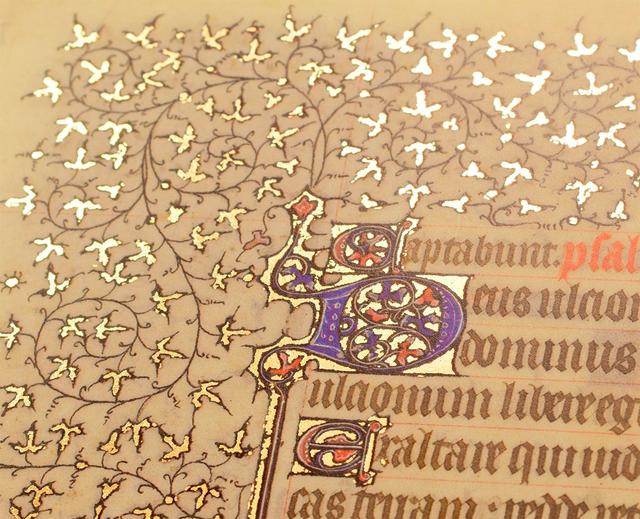 Captabunt. psal
Deus ulcion
dominus
ulcionum libere eg
Exaltare qui iud
cas terram : redde re